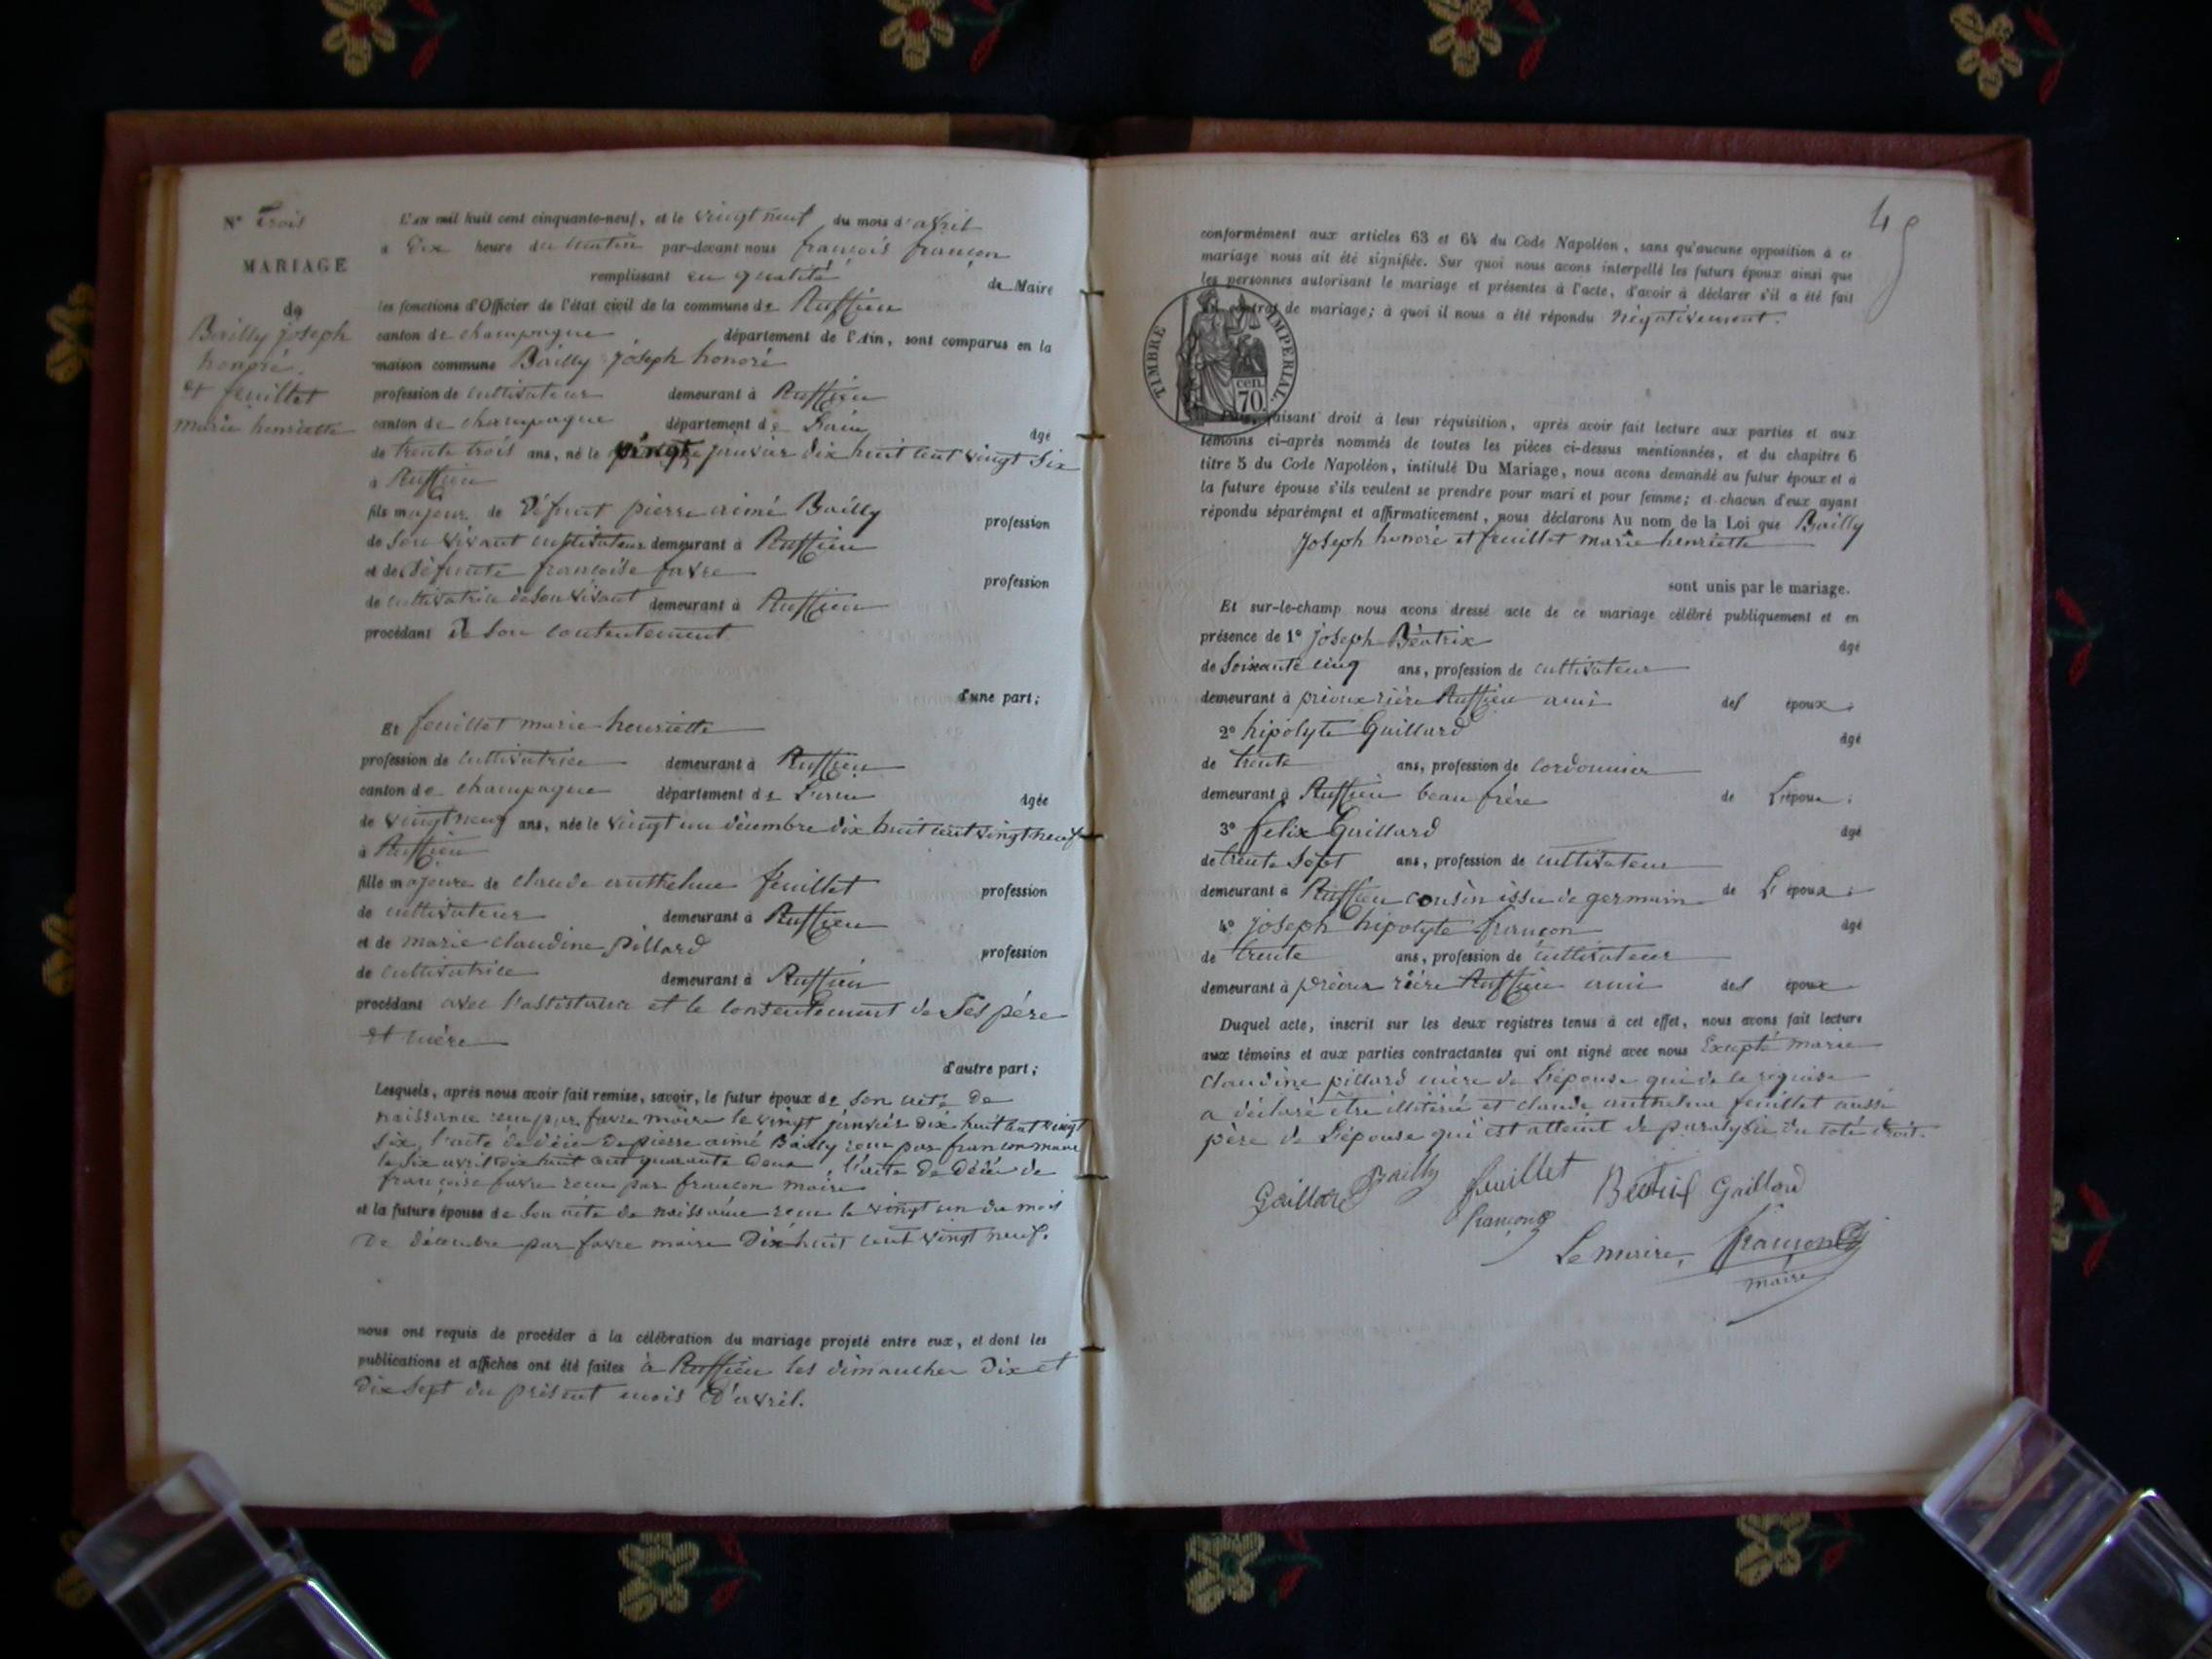 N° Trois
MARIAGE
de
Bailly joseph
honoré
et feuillet
marie henriette
L'an mil huit cent cinquante-neuf, et le vingt neuf du mois d'avril
a Dix heure du matin par-devant nous françois françon
remplissant en qualité de Maire
les fonctions d'Officier de l'état civil de la commune de Ruffieu
canton de champagne département de l'Ain, sont comparus en la
maison commune Bailly joseph honoré
profession de cultivateur demeurant à Ruffieu
canton de champagne département de L'ain âgé
de trente trois ans, né le vingt janvier dix huit cent vingt six
à Ruffieu
fils majeur de Défunt pierre aimé Bailly profession
de son vivant cultivateur demeurant à Ruffieu
et de défunte françoise favre profession
de cultivatrice de son vivant demeurant à Ruffieu
procédant de son contentement
d'une part;
Et feuillet marie henriette
profession de cultivatrice demeurant à Ruffieu
canton de champagne département de L'ain âgée
de vingt neuf ans, née le vingt un décembre dix huit cent vingt neuf
à Ruffieu
fille majeure de claude anthelme feuillet profession
de cultivateur demeurant à Ruffieu
et de marie claudine pillard profession
de cultivatrice demeurant à Ruffieu
procédant avec l'assistance et le consentement de ses père
et mère
d'autre part;
Lesquels, après nous avoir fait remise, savoir, le futur époux de son acte de
naissance reçu par favre maire le vingt janvier dix huit cent vingt
six, l'acte de décè de pierre aimé Bailly reçu par françon maire
le six avril dix huit cent quarante deux, l'acte de décè de
françoise favre reçu par françon maire
et la future épouse de son acte de naissance reçu le vingt un du mois
de décembre par favre maire Dix huit cent vingt neuf.
nous ont requis de procéder à la célébration du mariage projeté entre eux, et dont les
publications et affiches ont été faites à Ruffieu les dimanches dix et
dix sept du présent mois D'avril.
conformément aux articles 63 et 64 du Code Napoléon, sans qu'aucune opposition à ce
mariage nous ait été signifiée. Sur quoi nous avons interpellé les futurs époux ainsi que
les personnes autorisant le mariage et présentes à l'acte, d'avoir à déclarer s'il a été fait
contrat de mariage; à quoi il nous a été répondu négativement.
TIMBRE IMPERIAL
cen.
70.
faisant droit à leur réquisition, après avoir fait lecture aux parties et aux
témoins ci-après nommés de toutes les pièces ci-dessus mentionnées, et du chapitre 6
titre 5 du Code Napoléon, intitulé Du Mariage, nous avons demandé au futur époux et à
la future épouse s'ils veulent se prendre pour mari et pour femme; et chacun d'eux ayant
répondu séparément et affirmativement, nous déclarons Au nom de la Loi que Bailly
Joseph honoré et feuillet marie henriette
sont unis par le mariage.
Et sur-le-champ nous avons dressé acte de ce mariage célébré publiquement et en
présence de 1° joseph Béatrix âgé
de soixante cinq ans, profession de cultivateur
demeurant à prioux rière Ruffieu ami des époux;
2° hipolyte Guillard âgé
de trente ans, profession de cordonnier
demeurant à Ruffieu beau frère de L'époux;
3° felix Guillard âgé
de trente sept ans, profession de cultivateur
demeurant à Ruffieu cousin issu de germain de L'époux;
4° joseph hipolyte françon âgé
de trente ans, profession de cultivateur
demeurant à prioux rière Ruffieu ami des époux
Duquel acte, inscrit sur les deux registres tenus à cet effet, nous avons fait lecture
aux témoins et aux parties contractantes qui ont signé avec nous Excepté marie
claudine pillard mère de L'épouse qui de la réquise
a déclaré être illitérée et claude anthelme feuillet aussi
père de L'épouse qui est atteint de paralysie du coté droit.
Gaillard Bailly feuillet Béatrix Gaillard
françon
Le maire, françon
maire